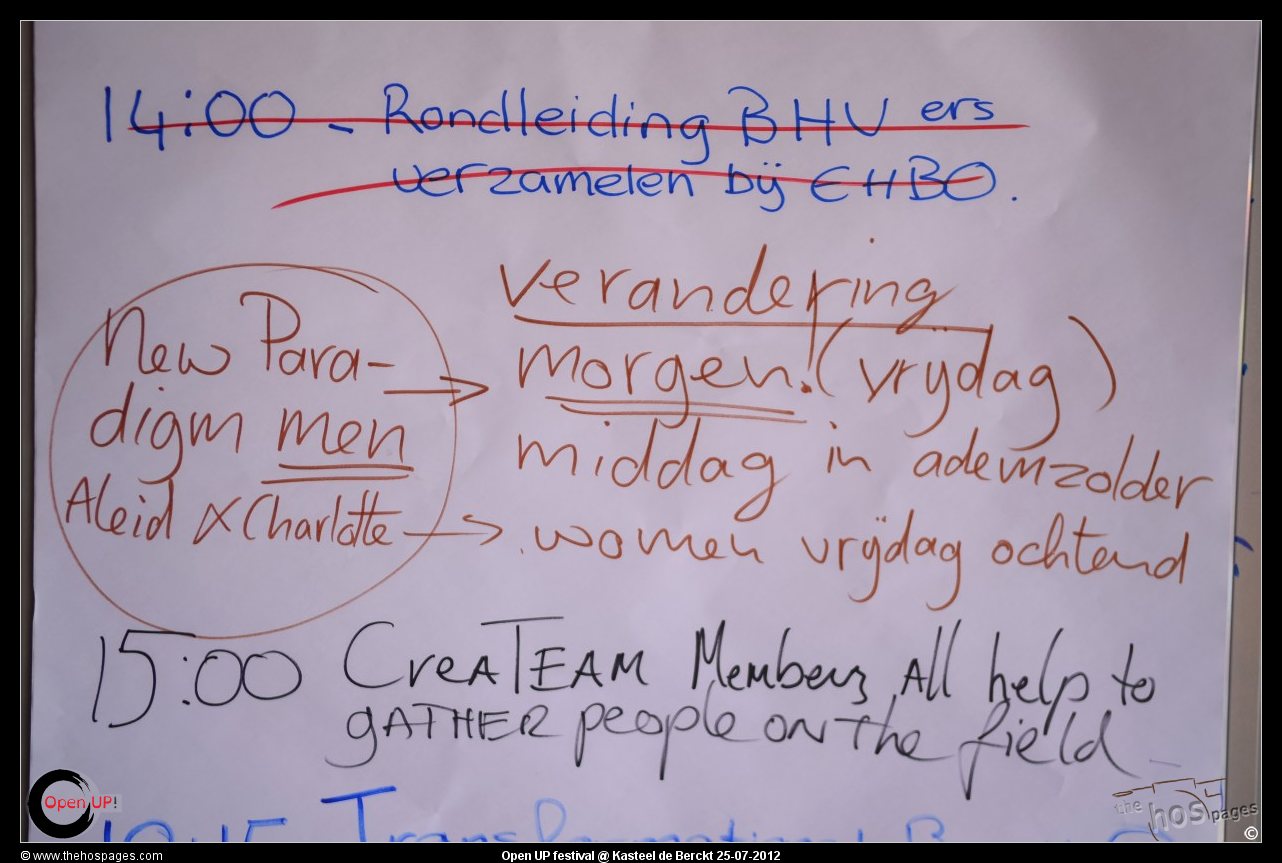 14:00 - Rondleiding BHV ers
verzamelen bij EHBO.
verandering
New Para-
morgen! (vrijdag)
digm men
middag in ademzolder
Aleid & Charlotte
women vrijdag ochtend
15:00 CreATEAM Members, All help to
gATHER people on the field
Open UP!
the hos pages
©
© www.thehospages.com
Open UP festival @ Kasteel de Berckt 25-07-2012